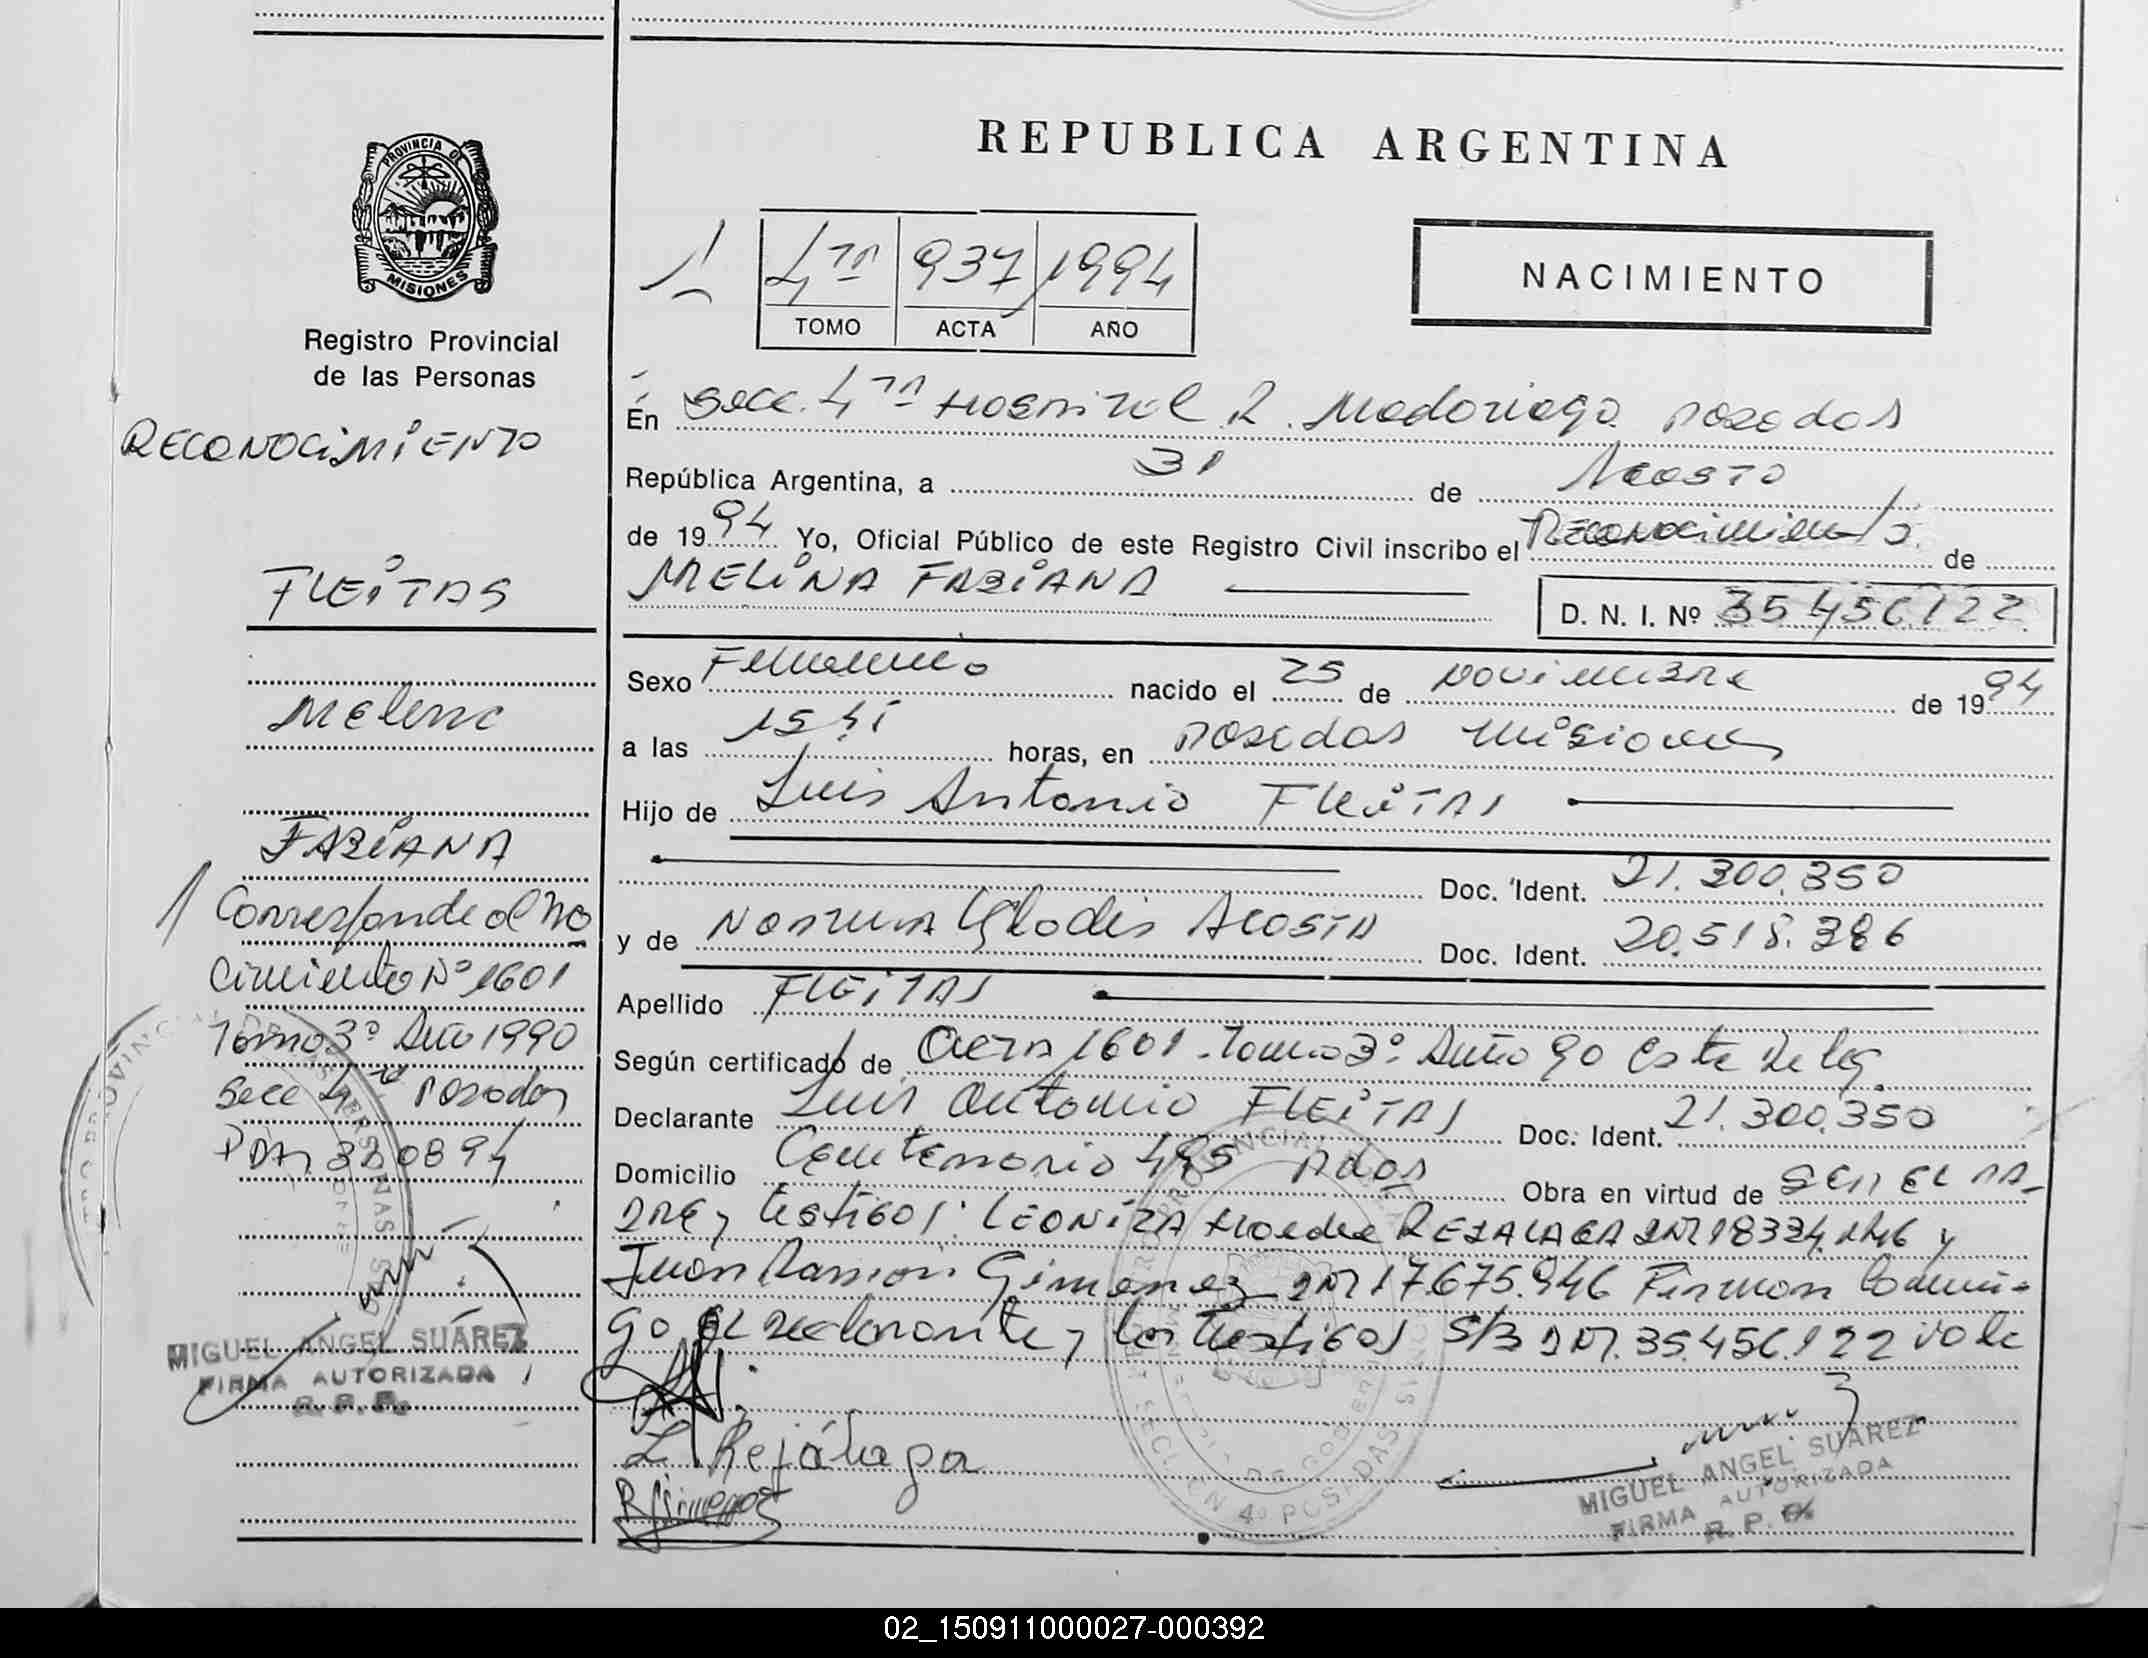 PROVINCIA DE
MISIONES
Registro Provincial
de las Personas
RECONOCIMIENTO
FLEITAS
Melina
FABIANA
Corresponde al Na
cimiento Nº 1601
Tomo 3º Año 1990
Secc 4ta Posadas
Pdas 310894
MIGUEL ANGEL SUAREZ
FIRMA AUTORIZADA
R. P. P.
REPUBLICA ARGENTINA
1 4ta 937 1994
TOMO ACTA AÑO
NACIMIENTO
En Secc. 4ta Hospital R. Madariaga Posadas
República Argentina, a 31 de Agosto
de 1994 Yo, Oficial Público de este Registro Civil inscribo el Reconocimiento de
MELINA FABIANA D. N. I. Nº 35456122
Sexo Femenino nacido el 25 de Noviembre de 1994
a las 1541 horas, en Posadas Misiones
Hijo de Luis Antonio FLEITAS
Doc. Ident. 21.300.350
y de Norma Gladis Acosta Doc. Ident. 20.518.386
Apellido FLEITAS
Según certificado de Acta 1601 Tomo 3º Año 90 Esta Deleg.
Declarante Luis Antonio FLEITAS Doc. Ident. 21.300.350
Domicilio Centenario 495 Pdas Obra en virtud de Ser el Pa-
dre, testigos: LEONIZA Haedee REJALAGA DNI 18334.246 y
Juan Ramon Gimenez DNI 17675.946 Firman Conmi-
go el declarante y los testigos S/B DNI. 35.456.122 vale
L Rejálaga
R Gimenez
REGISTRO PROVINCIAL DE LAS PERSONAS
SECCION 4ª POSADAS
MIGUEL ANGEL SUAREZ
FIRMA AUTORIZADA
R. P. P.
02_150911000027-000392